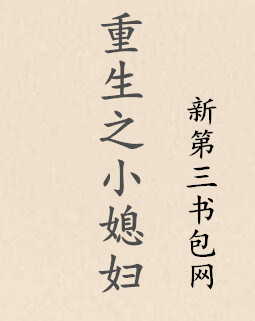 重生之小媳妇
新第三书包网